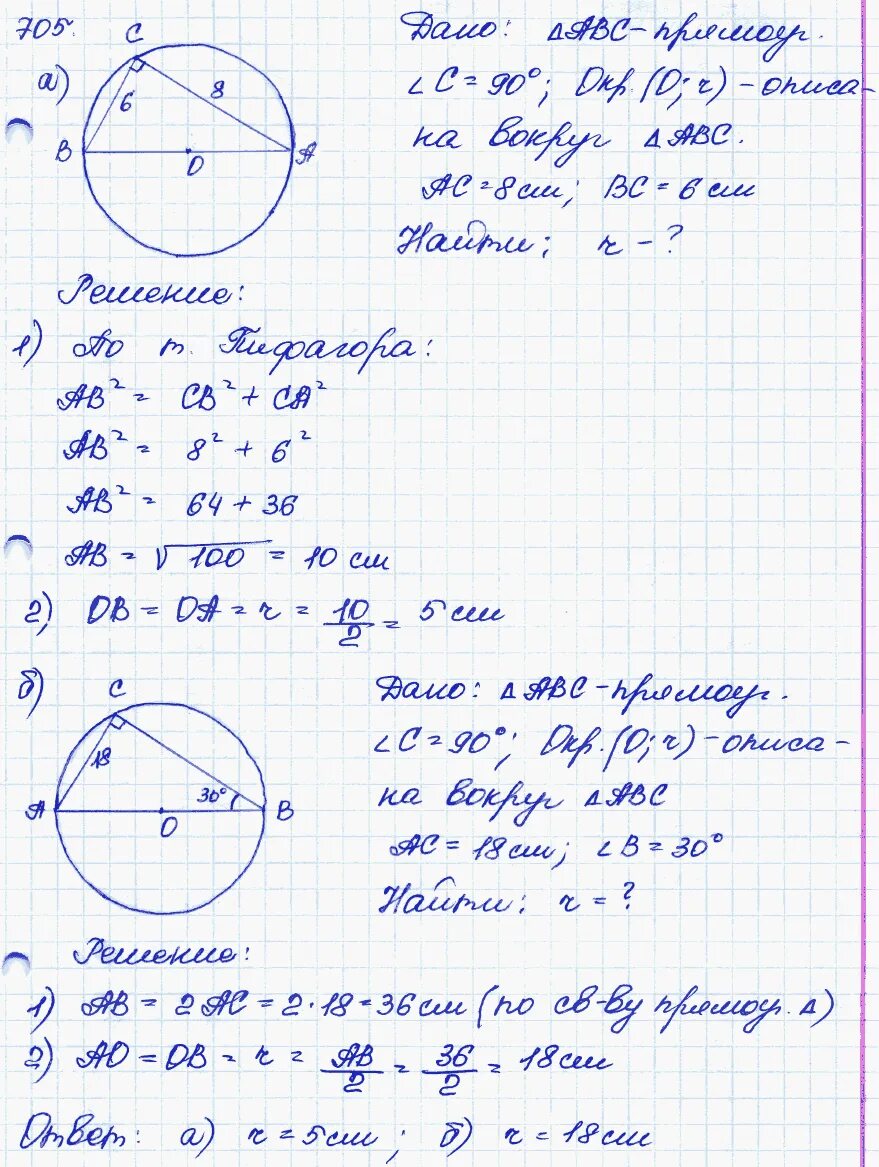 705.
а)
C
6
8
B
O
A
Дано: ΔABC – прямоуг.
∠C = 90°; Окр.(O; r) – описа-
на вокруг ΔABC.
AC = 8 см; BC = 6 см
Найти; r – ?
Решение:
1) По т. Пифагора:
AB² = CB² + CA²
AB² = 8² + 6²
AB² = 64 + 36
AB = √100 = 10 см
2) OB = OA = r = 10/2 = 5 см
б)
C
18
30°
A
O
B
Дано: ΔABC – прямоуг.
∠C = 90°; Окр.(O; r) – описа-
на вокруг ΔABC
AC = 18 см; ∠B = 30°
Найти: r = ?
Решение:
1) AB = 2AC = 2·18 = 36 см (по св-ву прямоуг. Δ)
2) AO = OB = r = AB/2 = 36/2 = 18 см
Ответ: а) r = 5 см; б) r = 18 см